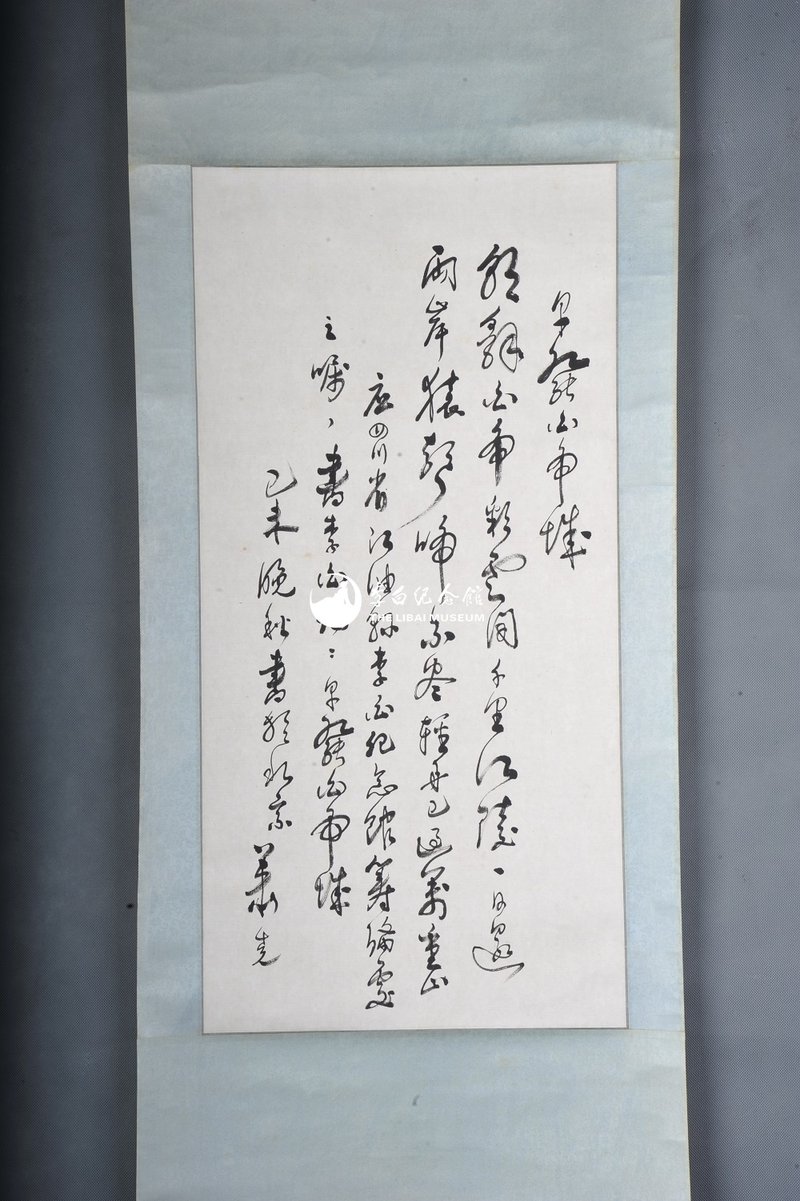 早發白帝城
朝辭白帝彩雲間千里江陵一日還
兩岸猿聲啼不盡輕舟已過萬重山
应四川省江油縣李白紀念館籌備處
之嘱書李白早發白帝城
己未晚秋書於北京蕭克
李白纪念館
THE LIBAI MUSEUM